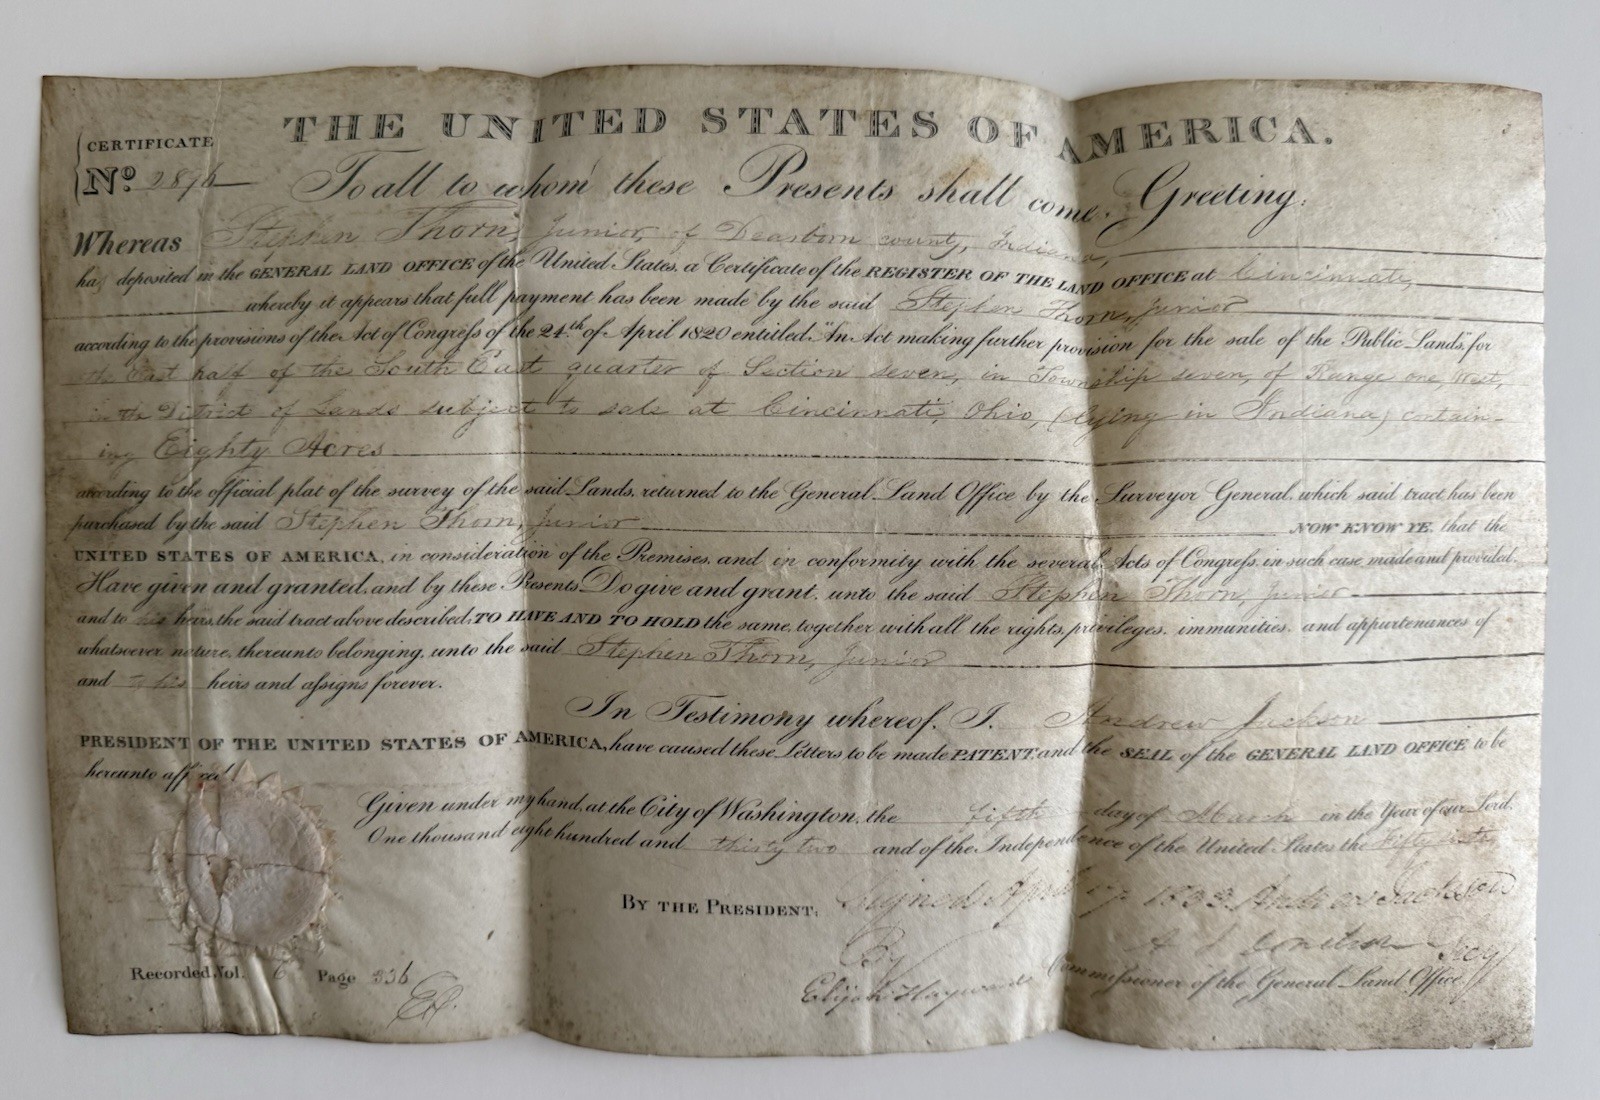 THE UNITED STATES OF AMERICA.
CERTIFICATE
No.
To all to whom these Presents shall come, Greeting:
Whereas Stephen Thorn, Junior, of Dearborn county, Indiana,
has deposited in the GENERAL LAND OFFICE of the United States, a Certificate of the REGISTER OF THE LAND OFFICE at Cincinnati,
whereby it appears that full payment has been made by the said Stephen Thorn, Junior
according to the provisions of the Act of Congress of the 24th of April 1820 entitled "An Act making further provision for the sale of the Public Lands," for
the East half of the South East quarter of Section seven, in Township seven, of Range one, West,
in the District of Lands subject to sale at Cincinnati, Ohio, (lying in Indiana) contain-
ing Eighty Acres
according to the official plat of the survey of the said Lands, returned to the General Land Office by the Surveyor General, which said tract has been
purchased by the said Stephen Thorn, Junior NOW KNOW YE, that the
UNITED STATES OF AMERICA, in consideration of the Premises, and in conformity with the several Acts of Congress, in such case made and provided,
Have given and granted, and by these Presents Do give and grant, unto the said Stephen Thorn, Junior
and to his heirs, the said tract above described; TO HAVE AND TO HOLD the same, together with all the rights, privileges, immunities, and appurtenances of
whatsoever nature, thereunto belonging, unto the said Stephen Thorn, Junior
and to his heirs and assigns forever.
In Testimony whereof, I, Andrew Jackson
PRESIDENT OF THE UNITED STATES OF AMERICA, have caused these Letters to be made PATENT, and the SEAL of the GENERAL LAND OFFICE to be
hereunto affixed.
Given under my hand, at the City of Washington, the fifth day of March in the Year of our Lord,
One thousand eight hundred and thirty two and of the Independence of the United States the Fifty sixth
BY THE PRESIDENT: Signed April 17 1833 Andrew Jackson
By Secy
Elijah Hayward Commissioner of the General Land Office
Recorded, Vol. 6 Page 336
EH.